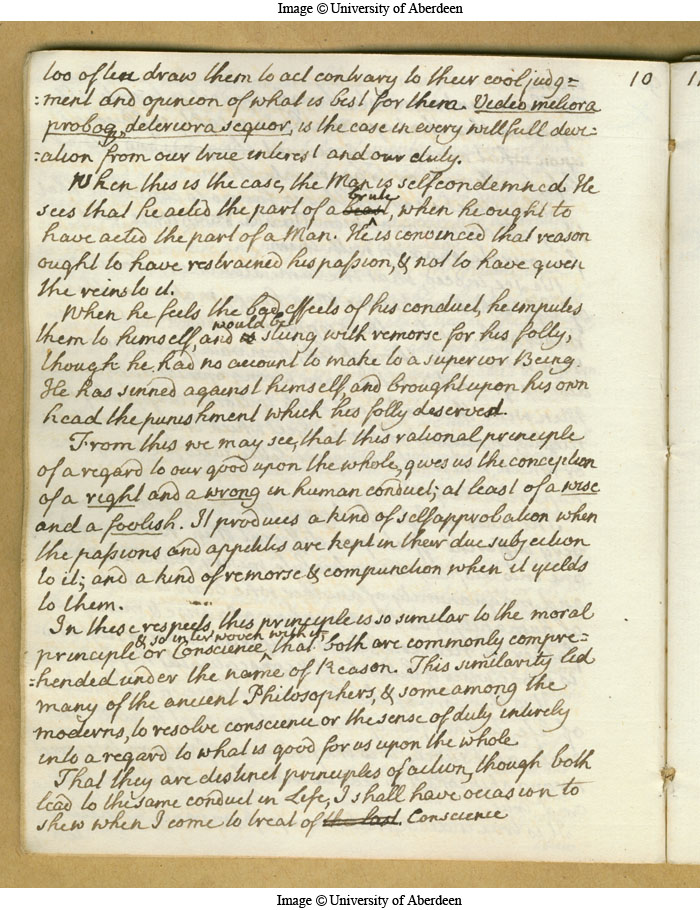 Image © University of Aberdeen
10
too often draw them to act contrary to their cool judg=
=ment and opinion of what is best for them. Video meliora
proboq, deteriora sequor, is the case in every willfull devi=
=ation from our true interest and our duty.
When this is the case, the Man is selfcondemned. He
brute
sees that he acted the part of a beast, when he ought to
have acted the part of a Man. He is convinced that reason
ought to have restrained his passion, & not to have given
the reins to it.
When he feels the bad effects of his conduct, he imputes
would be
them to himself, and is stung with remorse for his folly,
though he had no account to make to a superior Being.
He has sinned against himself, and brought upon his own
head the punishment which his folly deserved.
From this we may see, that this rational principle
of a regard to our good upon the whole, gives us the conception
of a right and a wrong in human conduct; at least of a wise
and a foolish. It produces a kind of selfapprobation when
the passions and appetites are kept in their due subjection
to it; and a kind of remorse & compunction when it yields
to them.
In these respects, this principle is so similar to the moral
& so interwoven with it
principle or Conscience, that both are commonly compre=
=hended under the name of Reason. This similarity led
many of the ancient Philosophers, & some among the
moderns, to resolve conscience or the sense of duty intirely
into a regard to what is good for us upon the whole
That they are distinct principles of action, though both
lead to the same conduct in Life, I shall have occasion to
shew when I come to treat of the last. Conscience
Image © University of Aberdeen